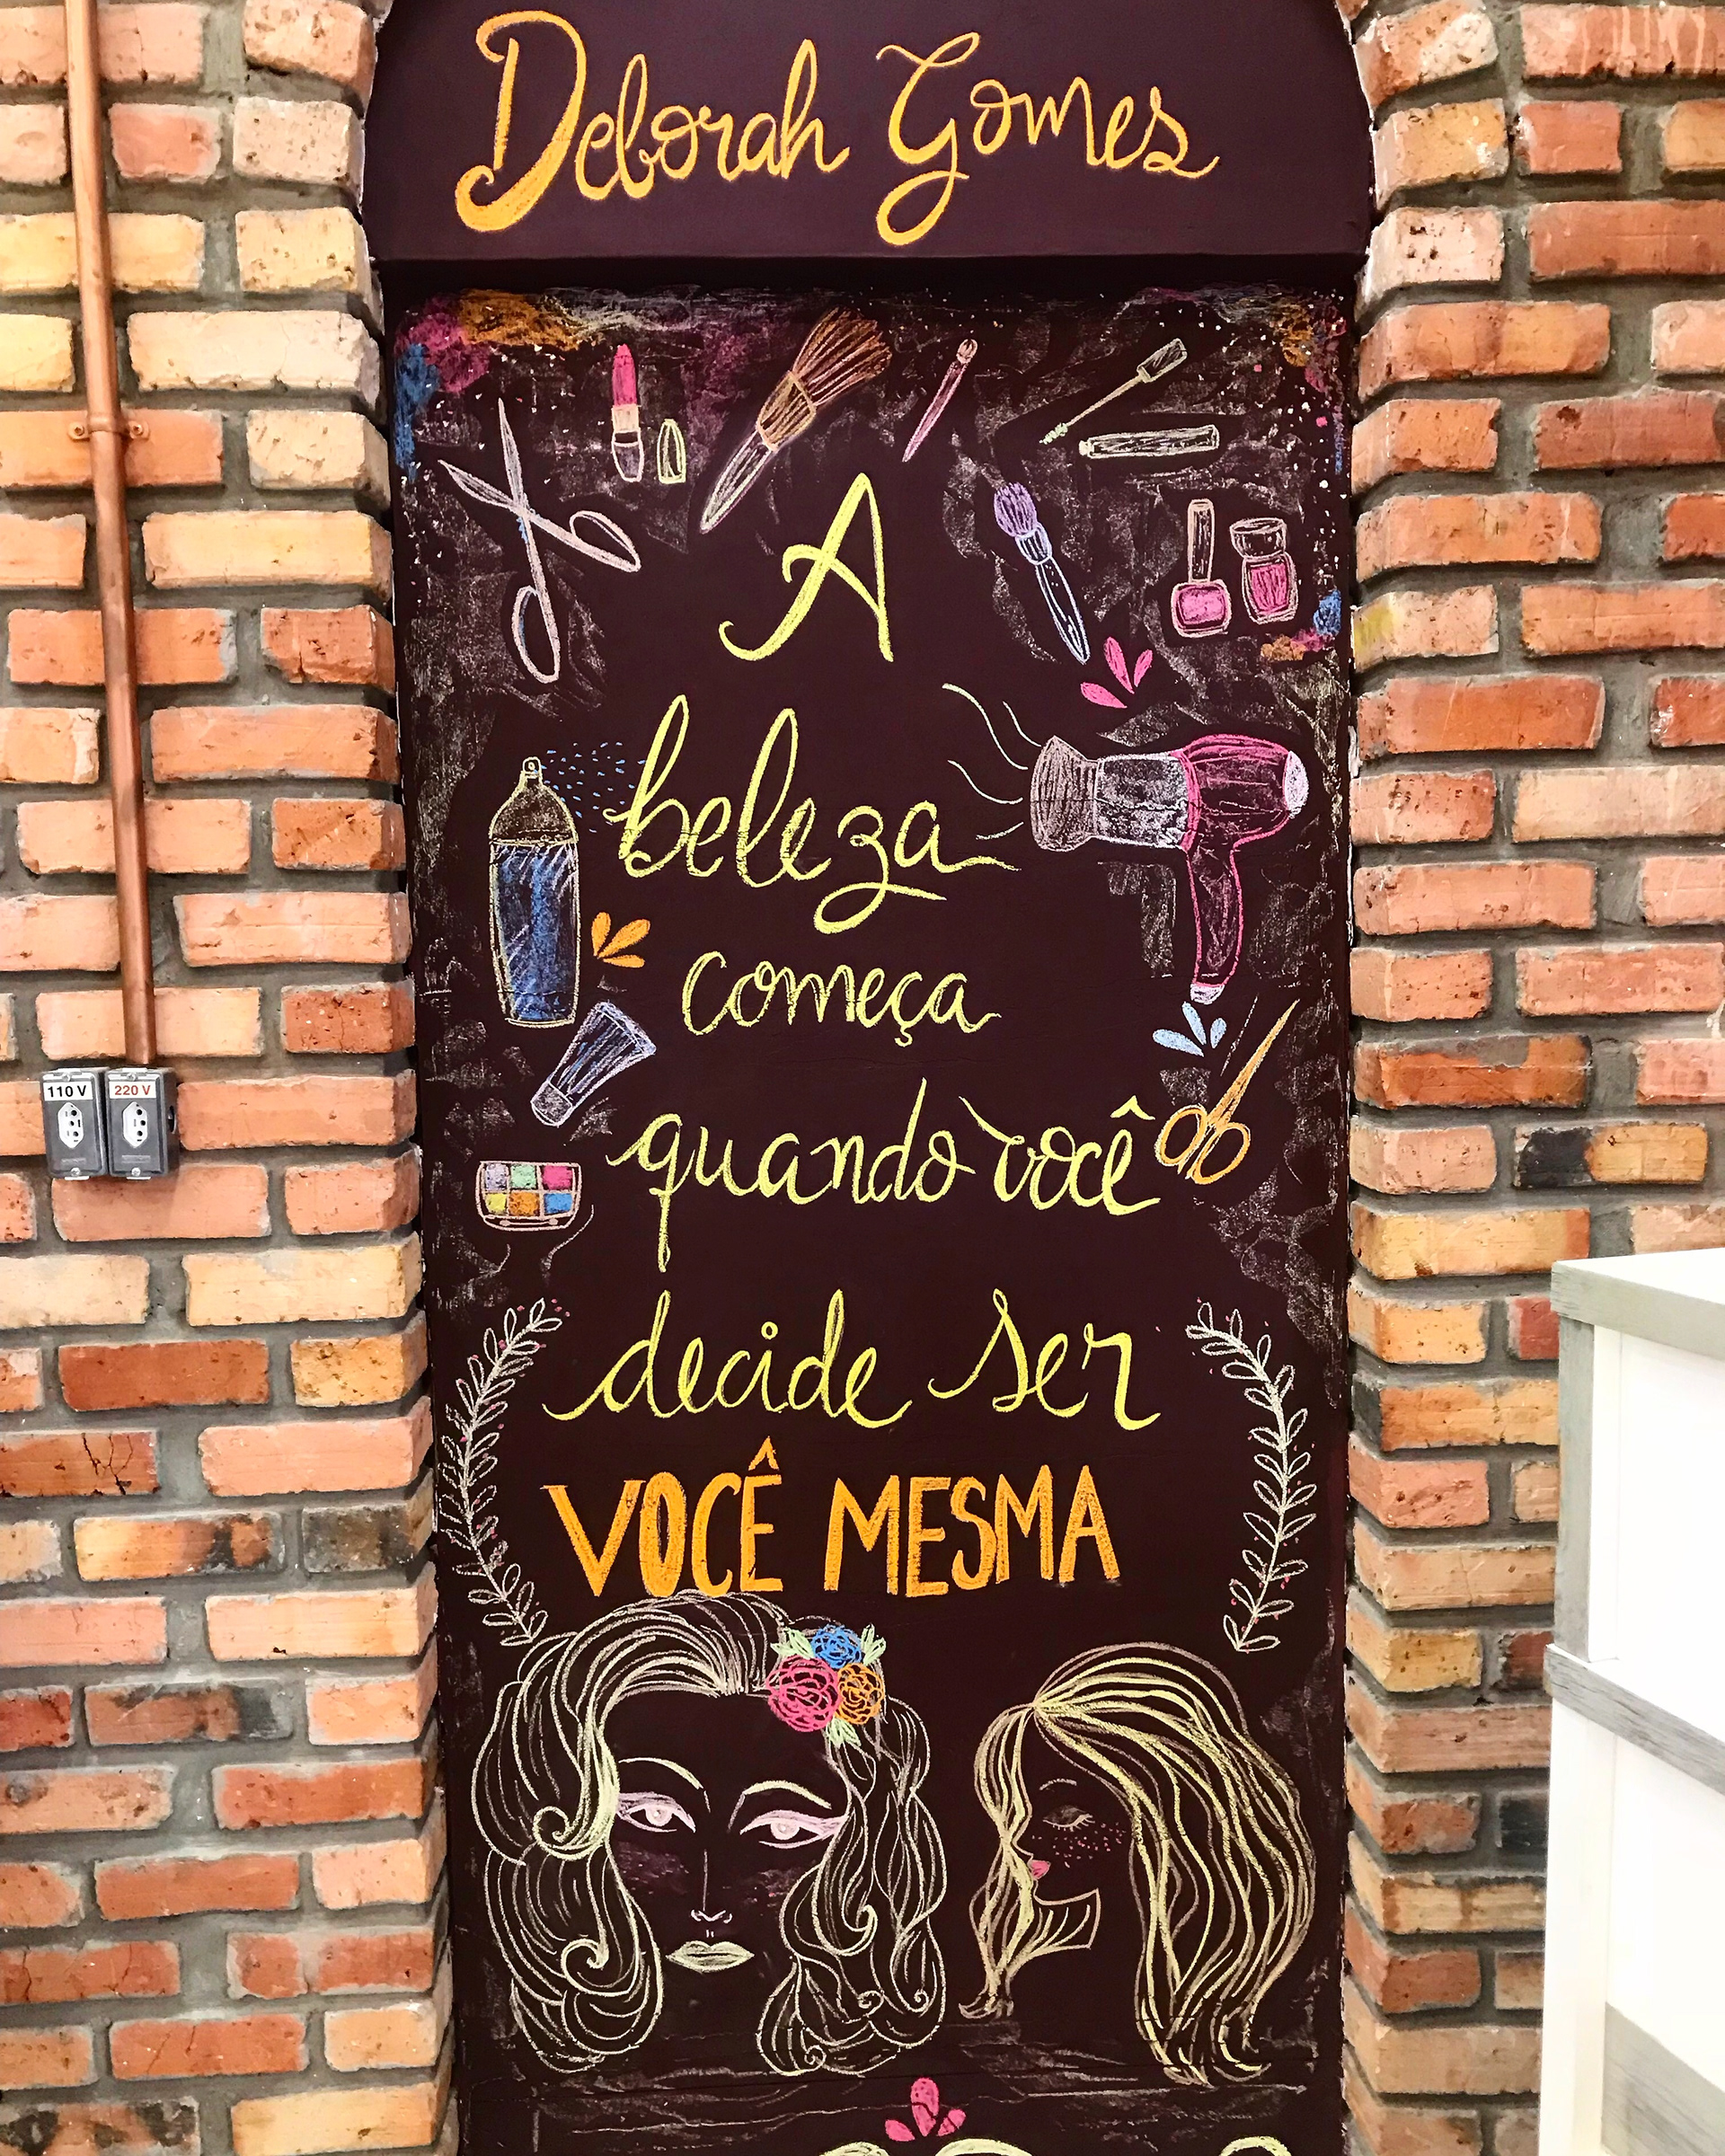 Deborah Gomes
A
beleza
começa
quando você
decide ser
VOCÊ MESMA
110 V 220 V